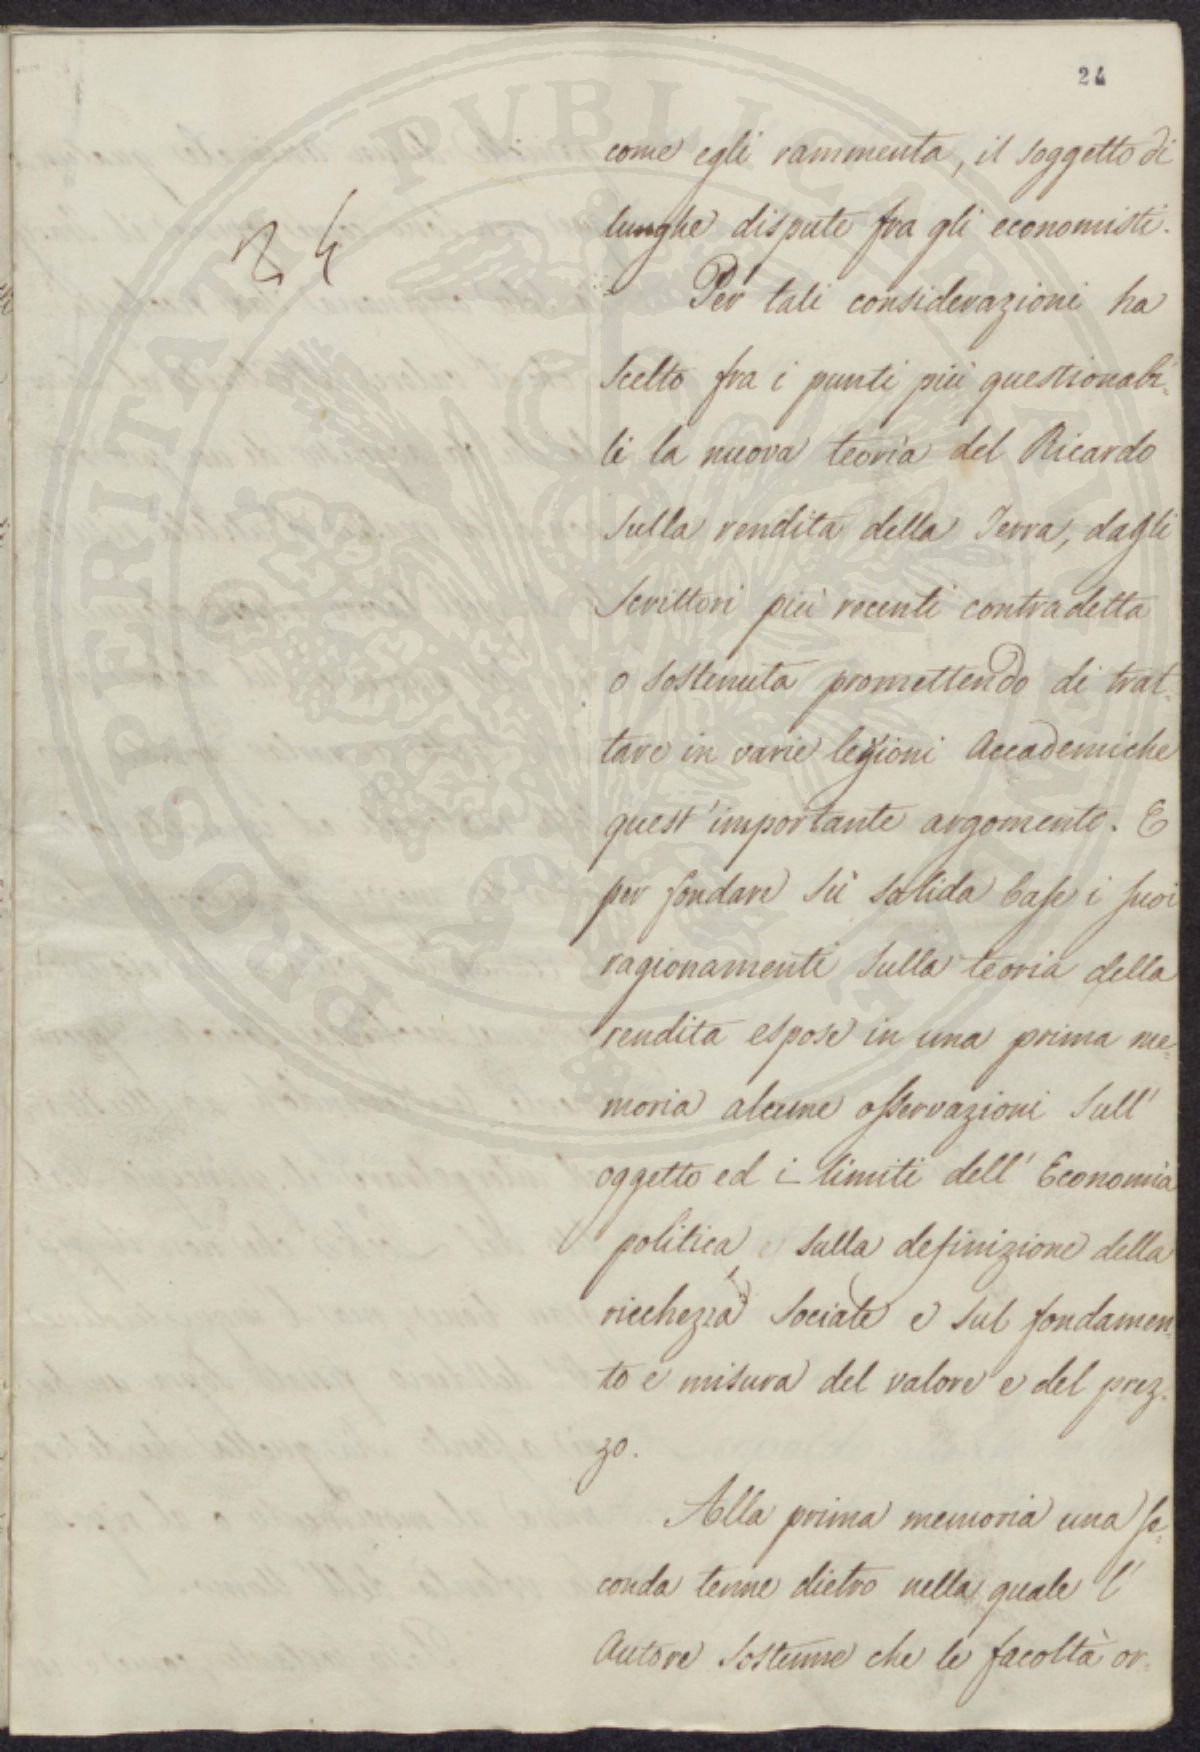 24
24
come egli rammenta, il soggetto di
lunghe dispute fra gli economisti.
Per tali considerazioni ha
scelto fra i punti più questionabi=
li la nuova teoria del Ricardo
sulla rendita della Terra, dagli
scrittori più recenti contradetta
o sostenuta promettendo di trat=
tare in varie lezioni Accademiche
quest'importante argomento. E
per fondare sù solida base i suoi
ragionamenti sulla teoria della
rendita espose in una prima me=
moria alcune osservazioni sull'
oggetto ed i limiti dell'Economia
politica, sulla definizione della
ricchezza sociale e sul fondamen=
to e misura del valore e del prez=
zo.
Alla prima memoria una se=
conda tenne dietro nella quale l'
Autore sostenne che le facoltà or=
PROSPERITATI PUBLICAE